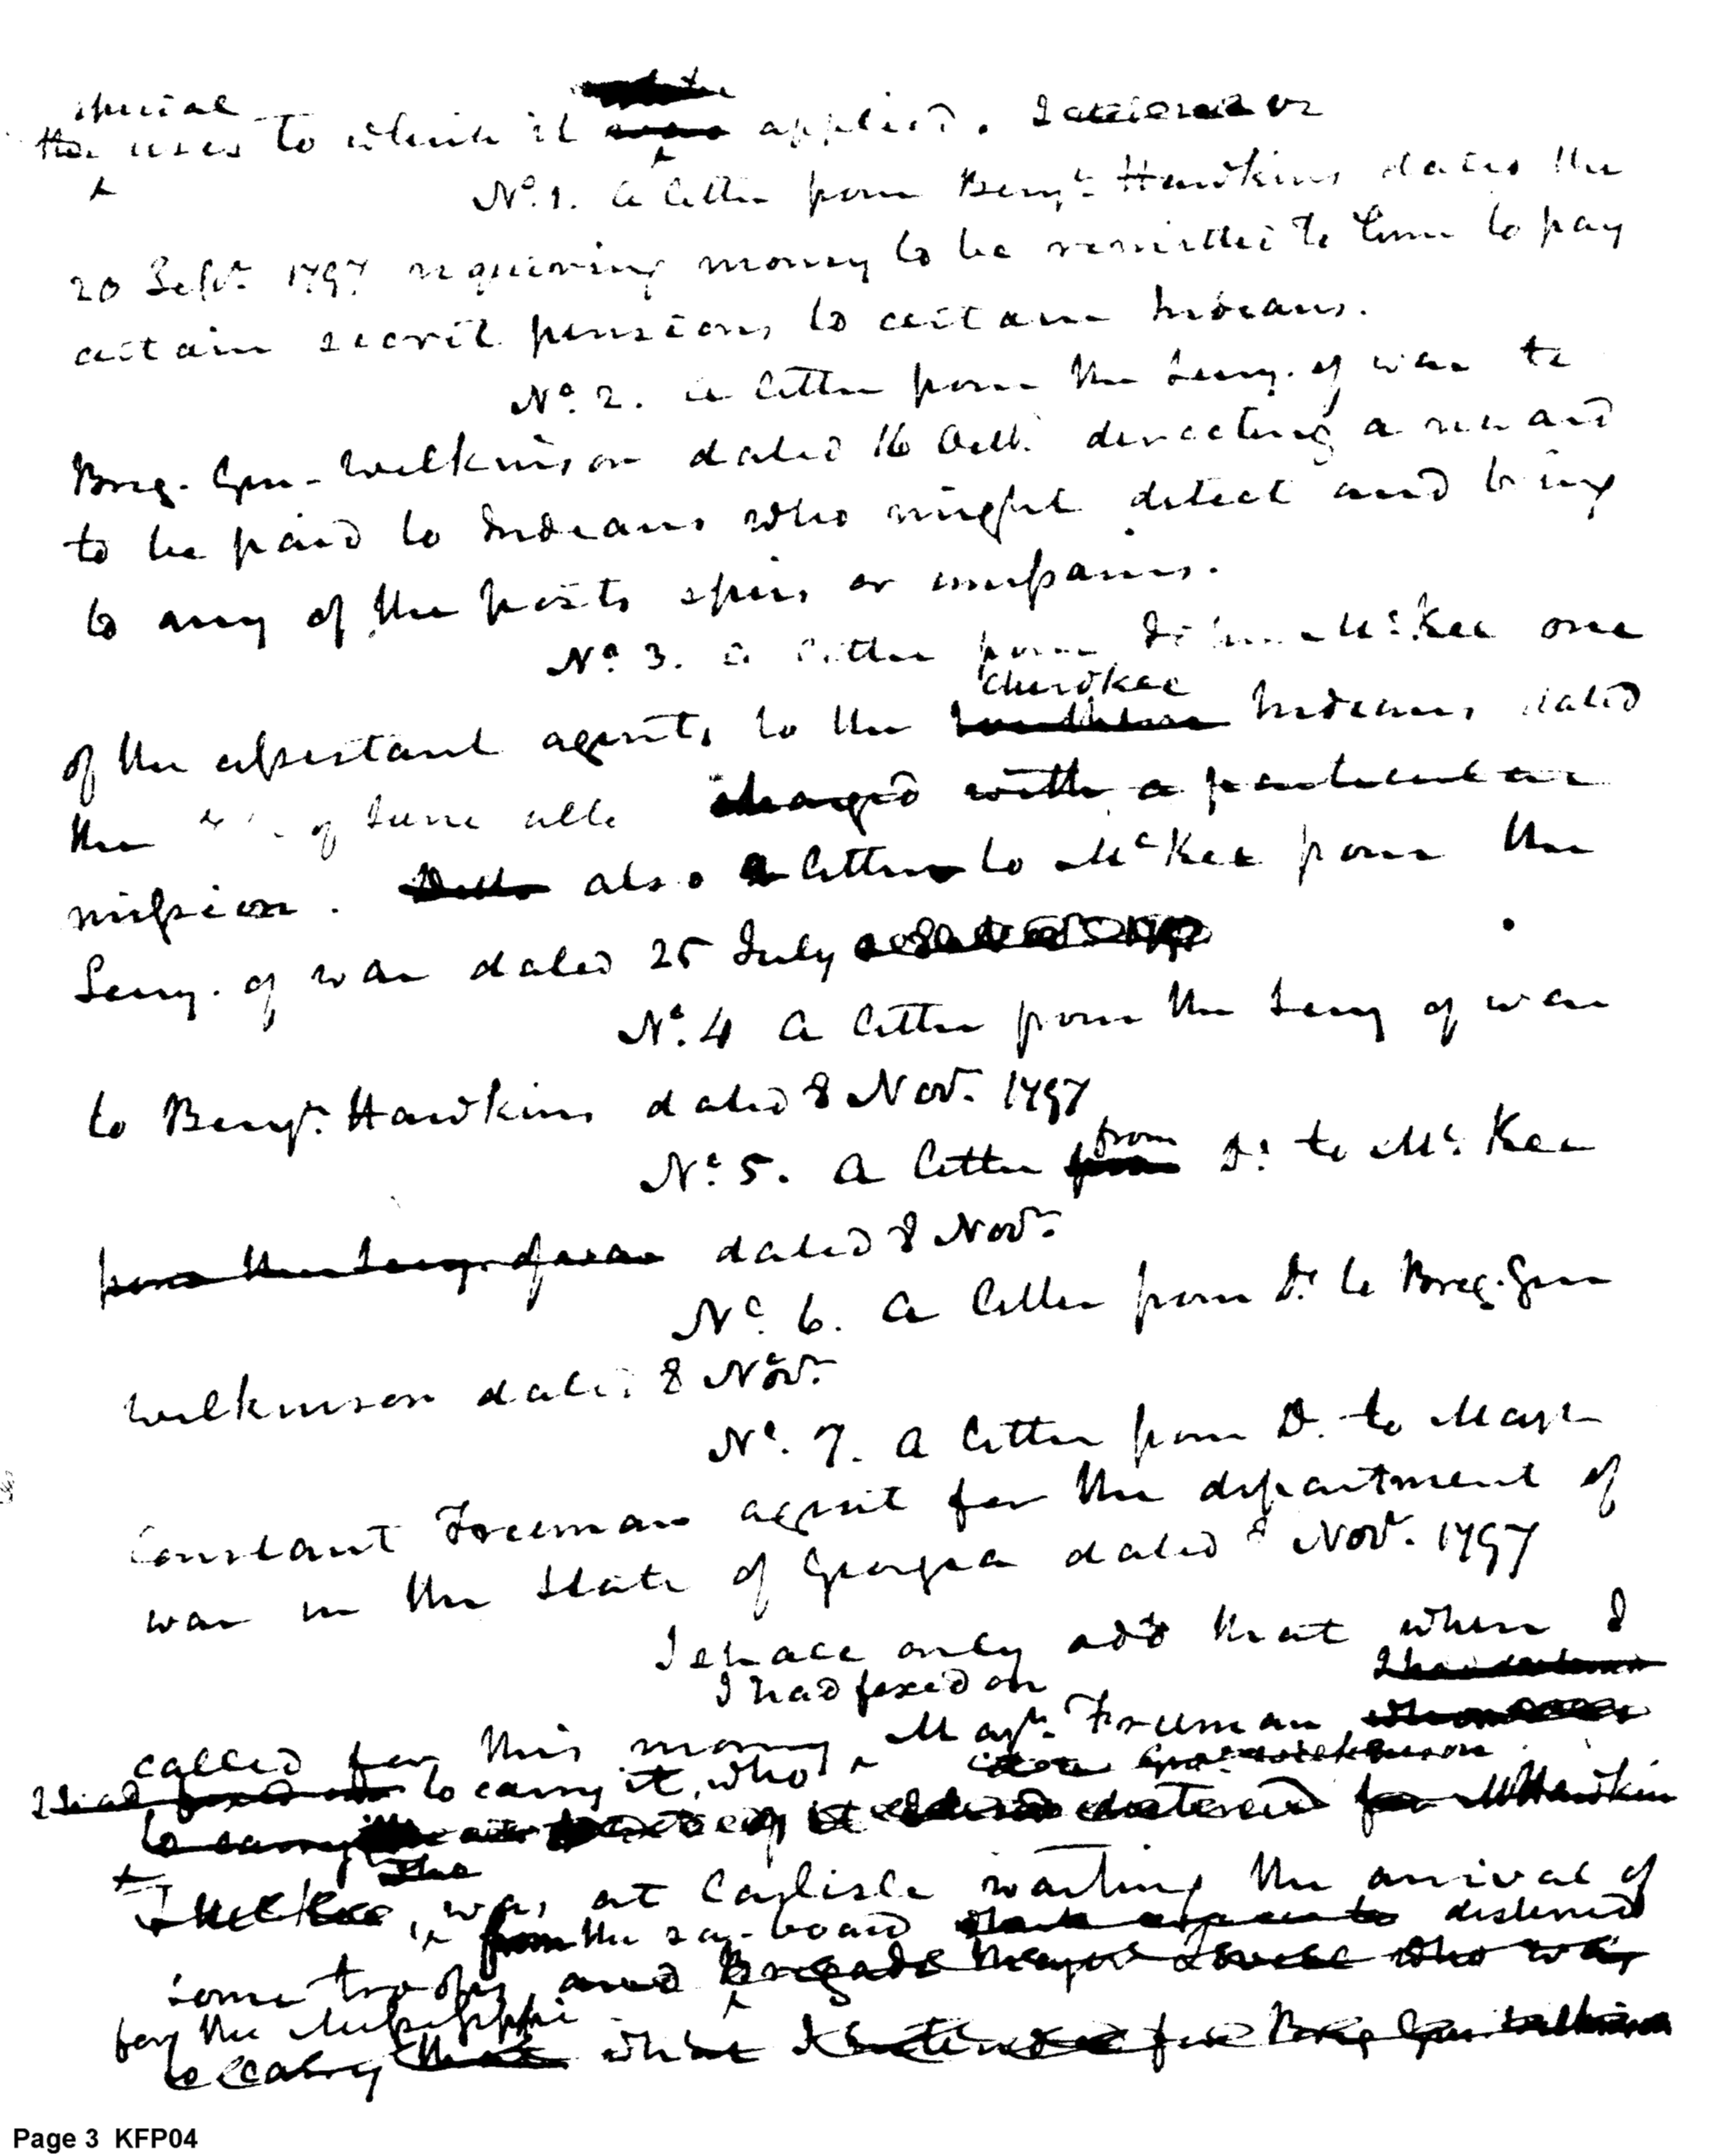 special
the uses to which it was applied. I enclose
No. 1. a letter from Benjn. Hawkins dated the
20 Sept. 1797 requiring money to be remitted to him to pay
certain secret pensions to certain Indians.
No. 2. a letter from the Secy. of war to
Brig. Gen. Wilkinson dated 16 Octr. directing a reward
to be paid to Indians who might detect and bring
to any of the posts spies or emissaries.
No. 3. a letter from John McKee one
Cherokee
of the assistant agents to the southern Indians dated
the of June also charged with a particular
mission. also a letter to McKee from the
Secy. of war dated 25 July
No. 4 a letter from the Secy of war
to Benjn. Hawkins dated 8 Nov. 1797
from
No. 5. a letter from Do. to McKee
from the Secy. of war dated 8 Nov.
No. 6. a letter from Do. to Brig. Gen
Wilkinson dated 8 Nov.
No. 7. a letter from Do. to Major
Constant Freeman agent for the department of
war in the State of Georgia dated 8 Nov. 1797
I shall only add that when I
I had fixed on
called for this money Majr. Freeman
I had fixed on to carry it, who Genl. Wilkinson
to carry destined for Mr Hawkins
McKee, was at Carlisle waiting the arrival of
from the sea-board destined
some troops and Brigade Major Lovell who was
for the Mississippi
to carry that what I intended for Brig Gen. Wilkinson
Page 3 KFP04